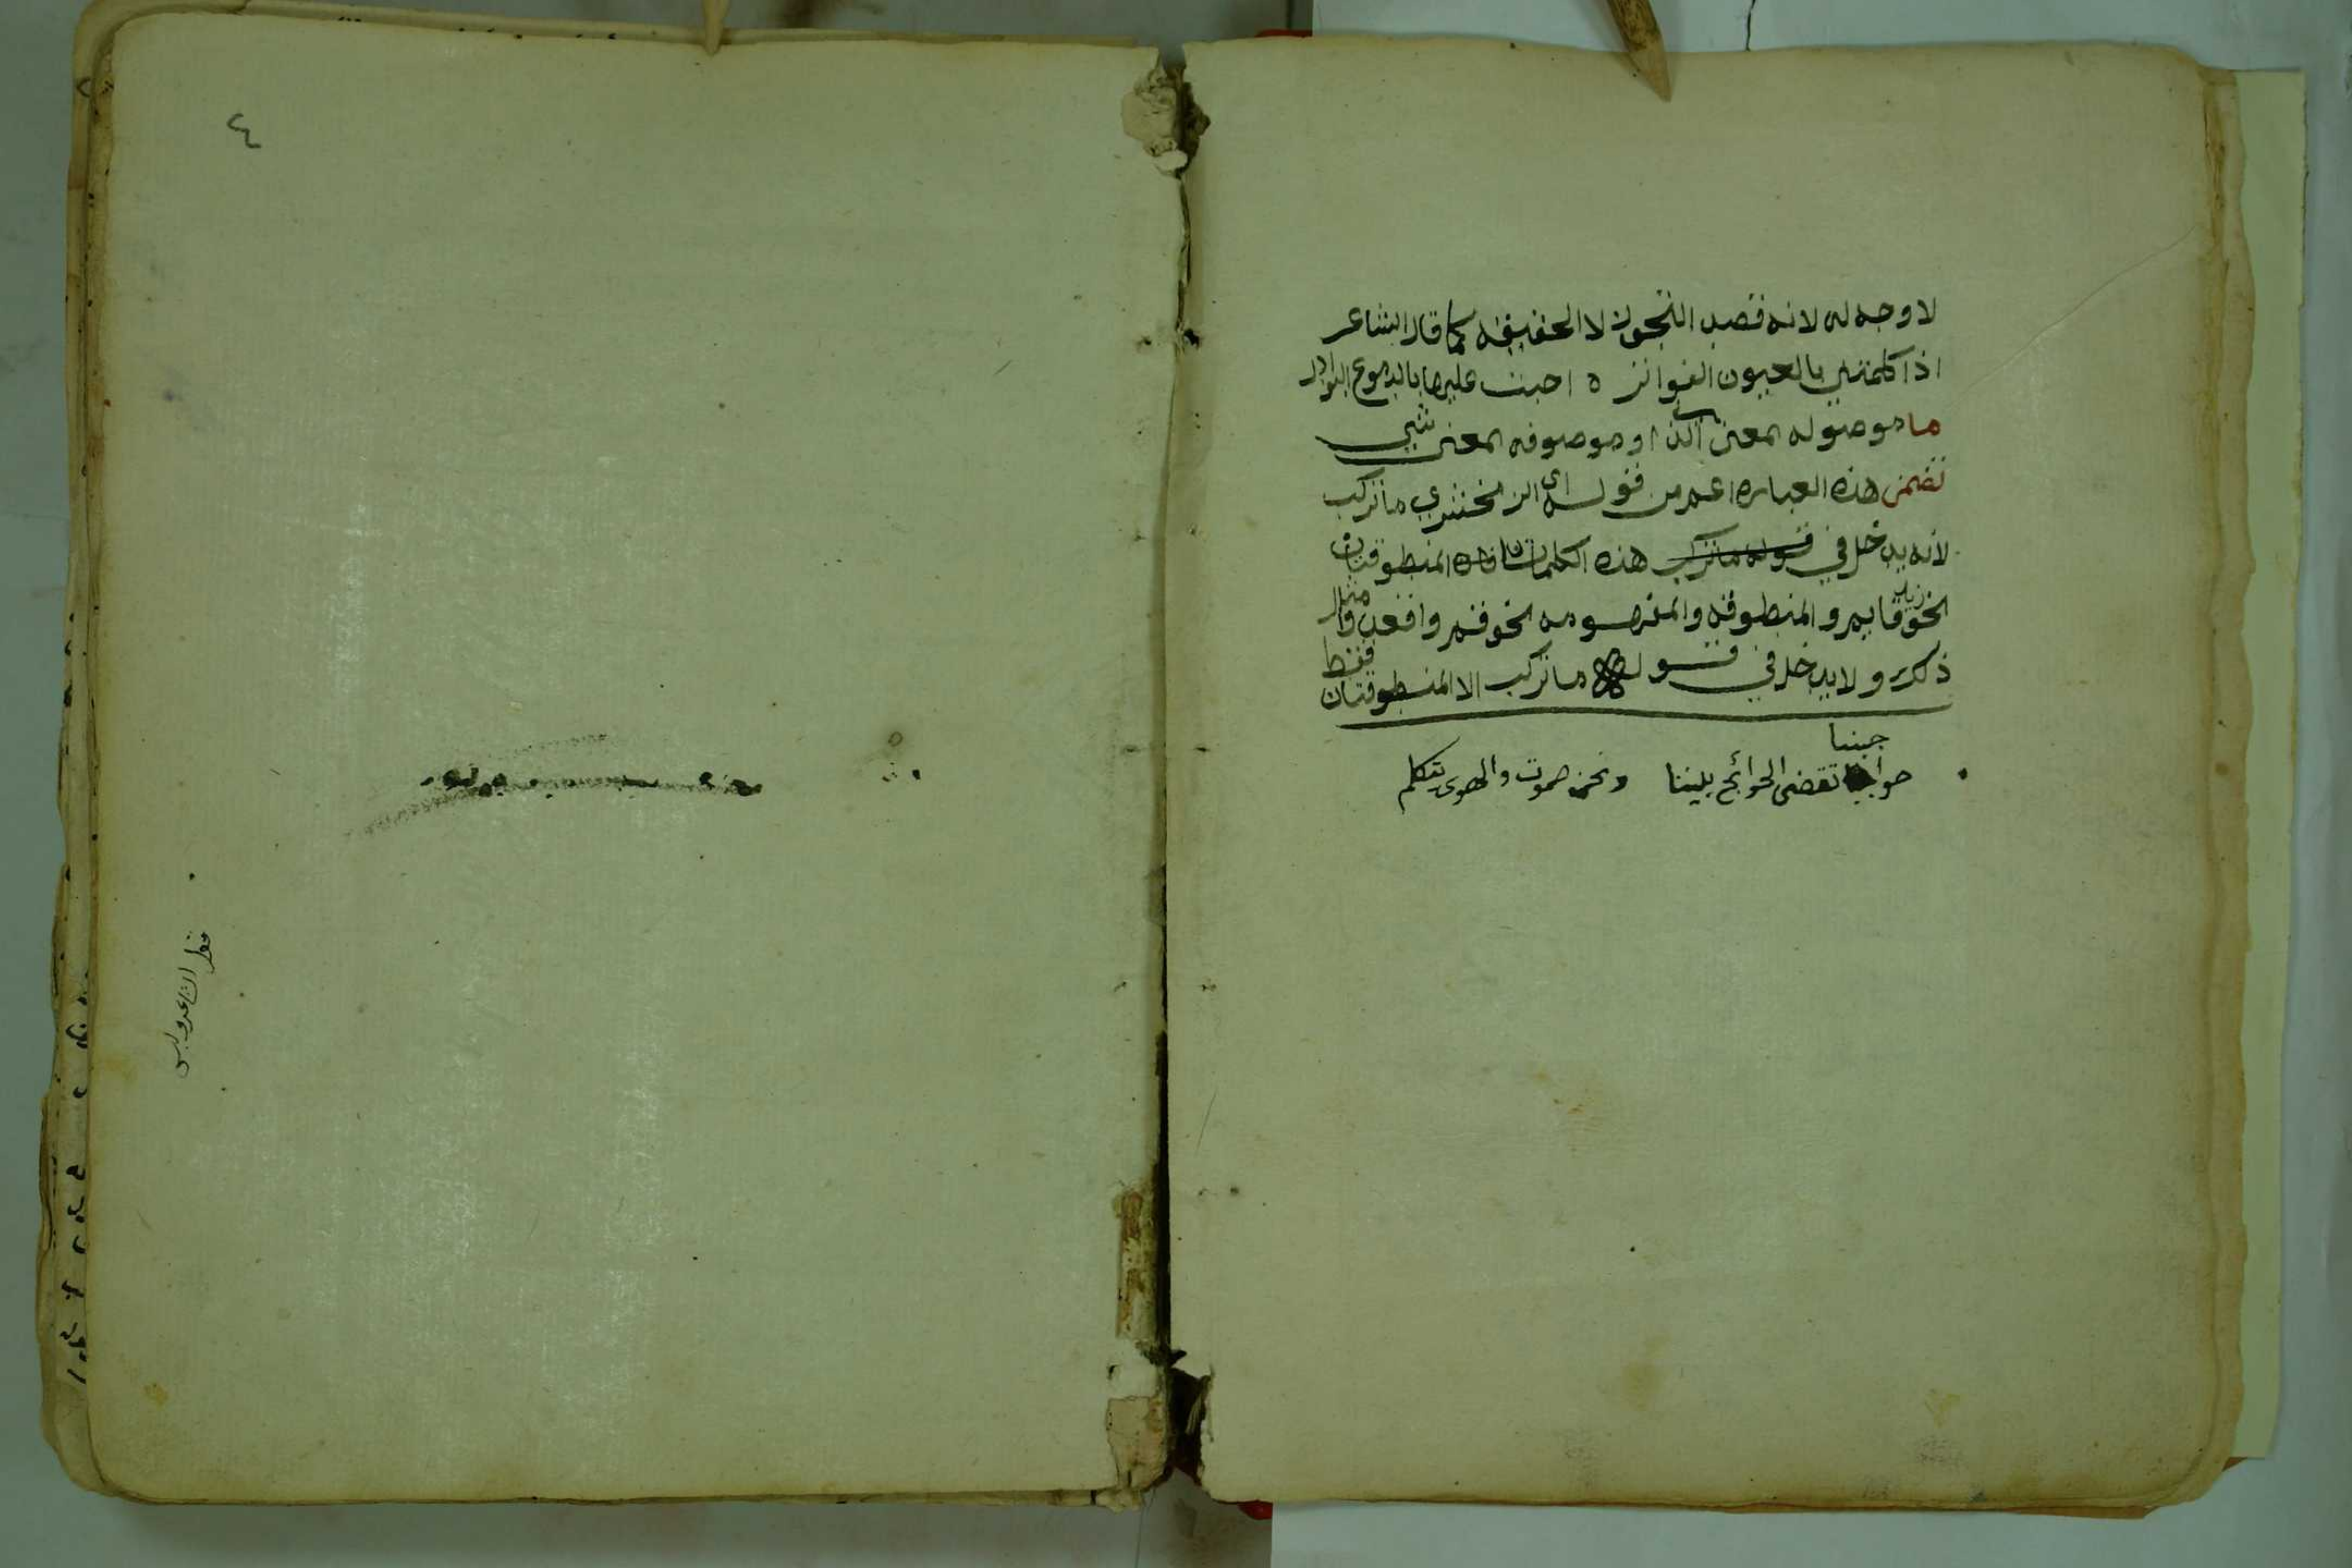 لا وجه له لانه قصد التجوز لا الحقيقه كما قال الشاعر
اذا كلمتني بالعيون الفواتر ه اجبت عليها بالدموع البوادر
ما موصوله بمعنى الذي او موصوفه بمعنى شيي
تضمن هذه العباره اعم من قول اي الزمخشري ما تركب
لانه يدخل في قوله ما تركب هذه الكلمتان المنطوقتان
نحو زيد قايم والمنطوقه والمفهومه نحو قم واقعد مثال
ذلك ولا يدخل في قوله ما تركب الا المنطوقتان فقط
حواجبنا تقضى الحوائج بيننا ونحن صموت والهوى يتكلم
جبنا
٤